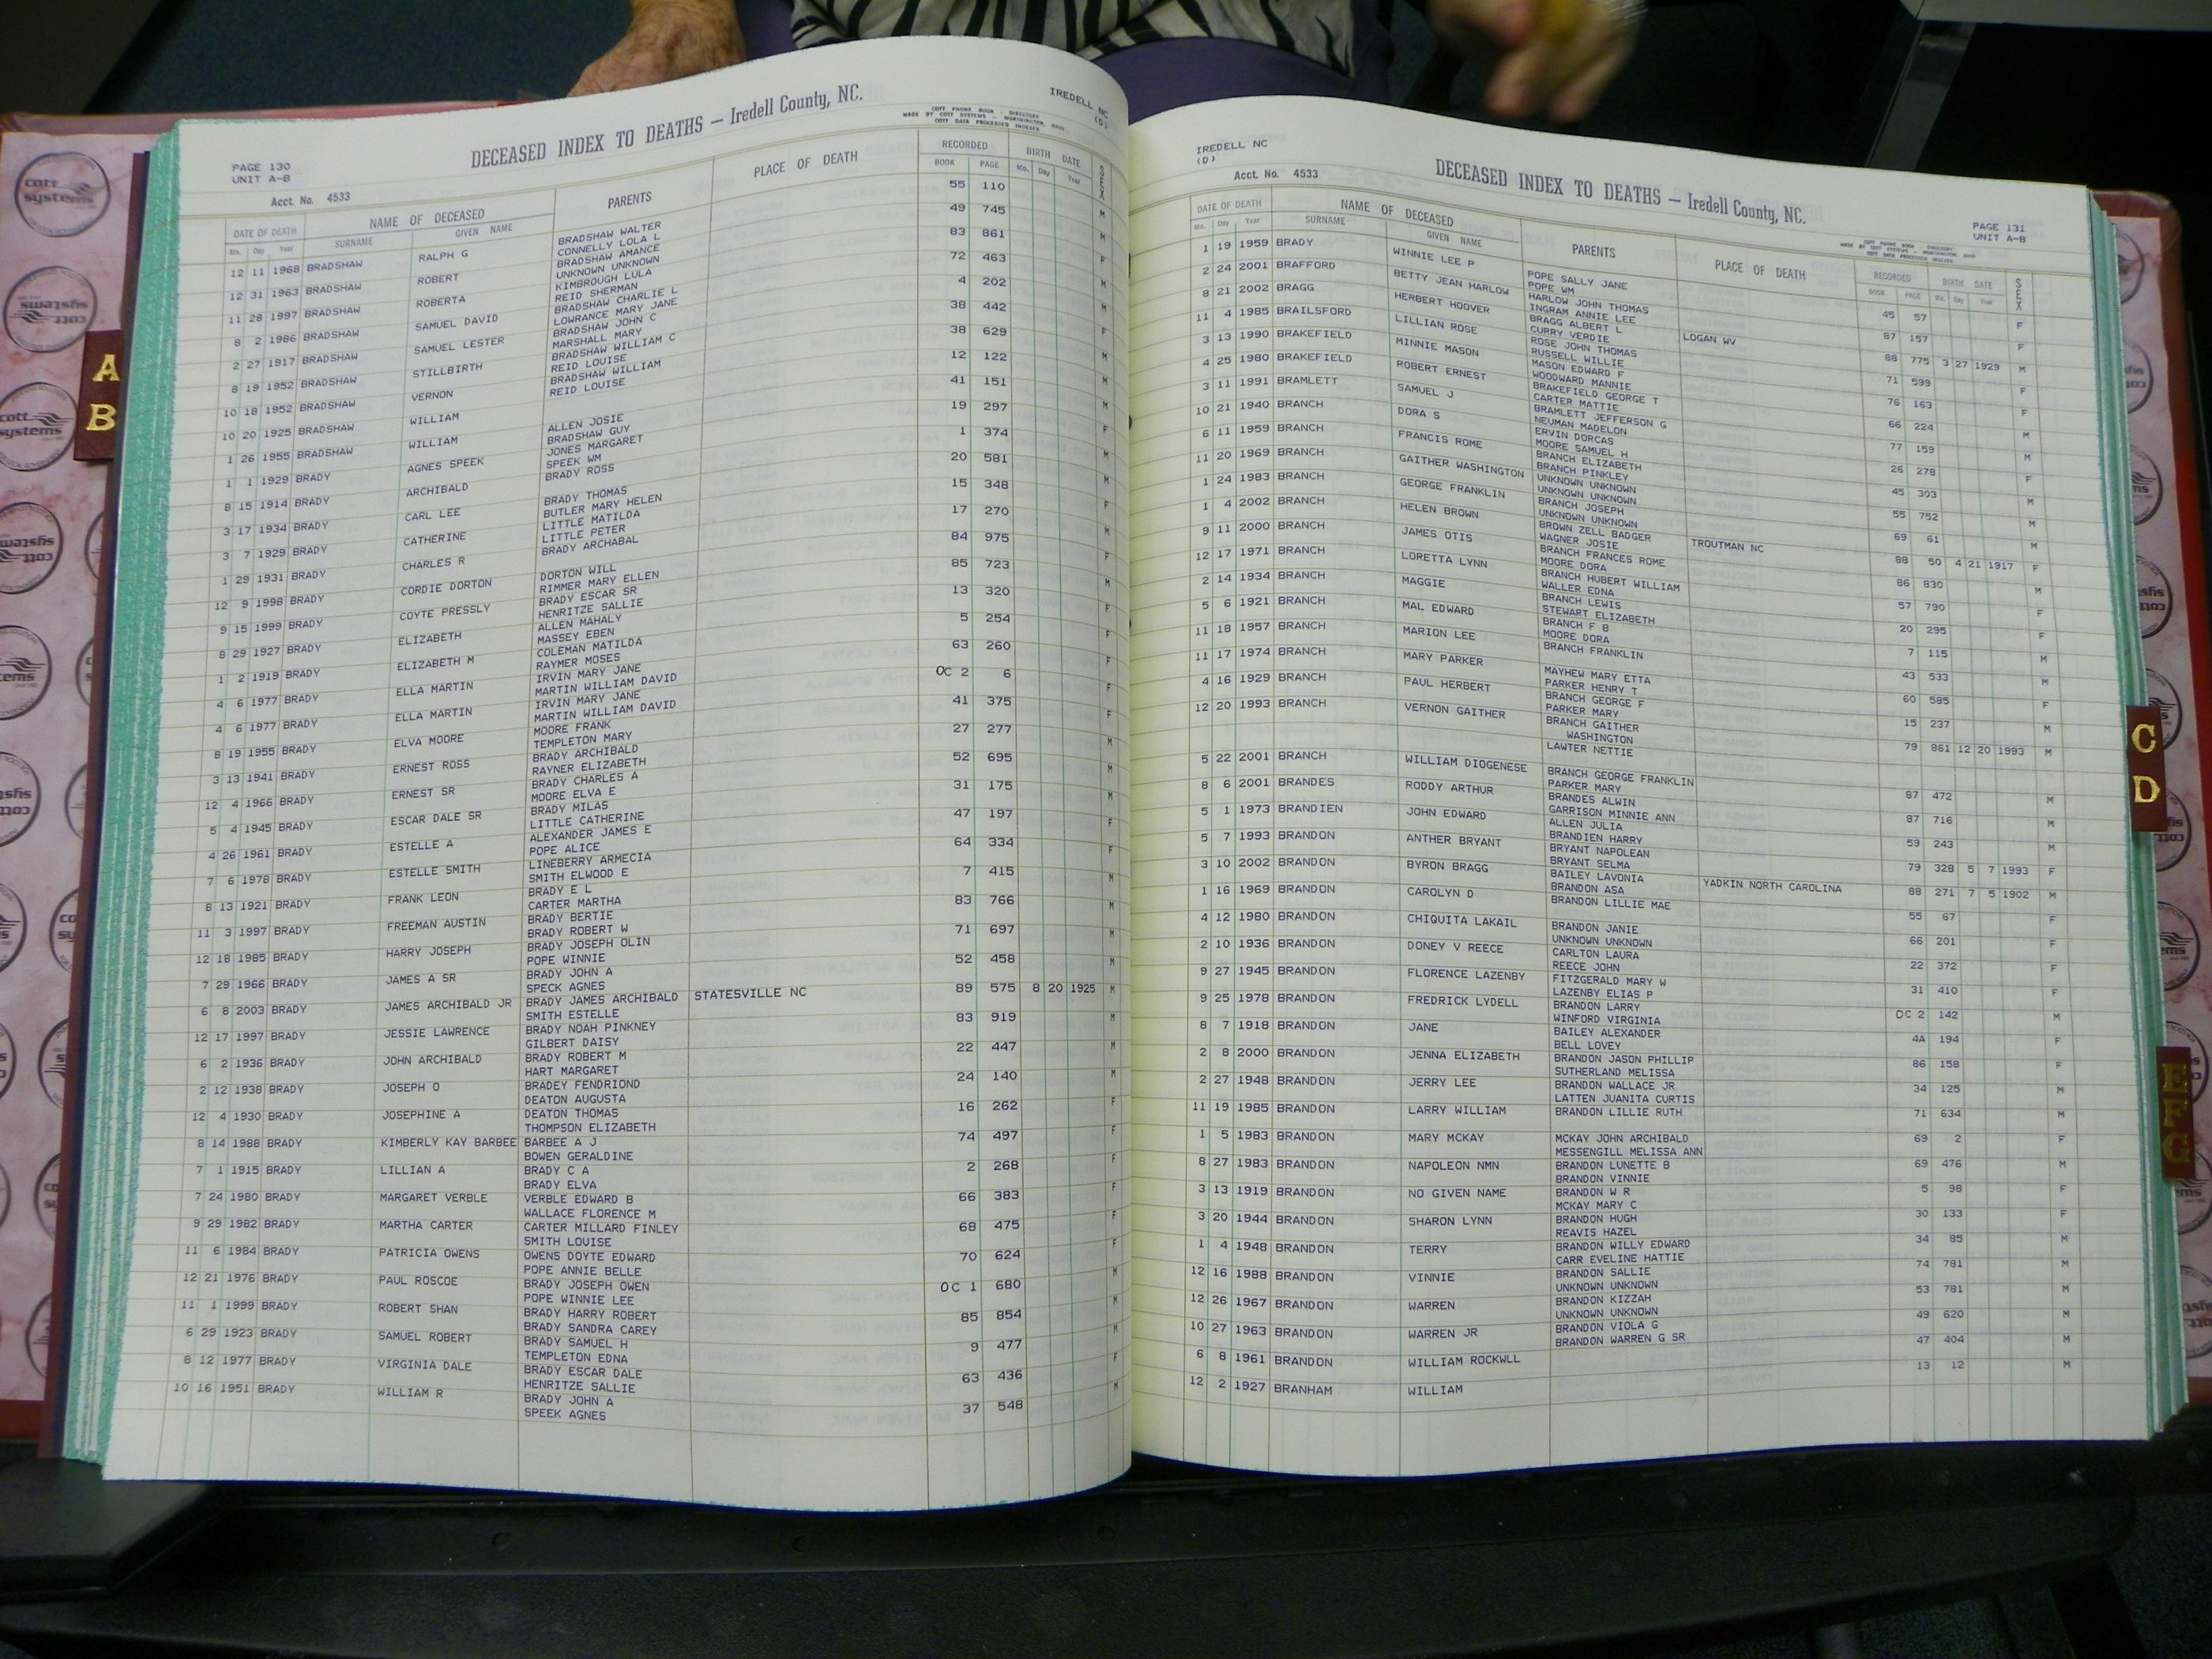 IREDELL NC
(D)
DECEASED INDEX TO DEATHS — Iredell County, NC.
COTT PHONE BOOK - DIRECTORY
MADE BY COTT SYSTEMS - WORTHINGTON, OHIO
COTT DATA PROCESSED INDEXES
PAGE 130
UNIT A-B
Acct. No. 4533
DATE OF DEATH NAME OF DECEASED PARENTS PLACE OF DEATH RECORDED BIRTH DATE SEX
Mo. Day Year SURNAME GIVEN NAME BOOK PAGE Mo. Day Year
12 11 1968 BRADSHAW RALPH G BRADSHAW WALTER 55 110 M
CONNELLY LOLA L
12 31 1963 BRADSHAW ROBERT BRADSHAW AMANCE 49 745 M
UNKNOWN UNKNOWN
11 28 1997 BRADSHAW ROBERTA KIMBROUGH LULA 83 861 F
REID SHERMAN
8 2 1986 BRADSHAW SAMUEL DAVID BRADSHAW CHARLIE L 72 463 M
LOWRANCE MARY JANE
2 27 1917 BRADSHAW SAMUEL LESTER BRADSHAW JOHN C 4 202 M
MARSHALL MARY
8 19 1952 BRADSHAW STILLBIRTH BRADSHAW WILLIAM C 38 442 F
REID LOUISE
10 18 1952 BRADSHAW VERNON BRADSHAW WILLIAM 38 629 M
REID LOUISE
10 20 1925 BRADSHAW WILLIAM 12 122 M
1 26 1955 BRADSHAW WILLIAM ALLEN JOSIE 41 151 M
BRADSHAW GUY
1 1 1929 BRADY AGNES SPEEK JONES MARGARET 19 297 F
SPEEK WM
8 15 1914 BRADY ARCHIBALD BRADY ROSS 1 374 M
3 17 1934 BRADY CARL LEE BRADY THOMAS 20 581 M
BUTLER MARY HELEN
3 7 1929 BRADY CATHERINE LITTLE MATILDA 15 348 F
LITTLE PETER
1 29 1931 BRADY CHARLES R BRADY ARCHABAL 17 270 M
12 9 1998 BRADY CORDIE DORTON DORTON WILL 84 975 F
RIMMER MARY ELLEN
9 15 1999 BRADY COYTE PRESSLY BRADY ESCAR SR 85 723 M
HENRITZE SALLIE
8 29 1927 BRADY ELIZABETH ALLEN MAHALY 13 320 F
MASSEY EBEN
1 2 1919 BRADY ELIZABETH M COLEMAN MATILDA 5 254 F
RAYMER MOSES
4 6 1977 BRADY ELLA MARTIN IRVIN MARY JANE 63 260 F
MARTIN WILLIAM DAVID
4 6 1977 BRADY ELLA MARTIN IRVIN MARY JANE OC 2 6 F
MARTIN WILLIAM DAVID
8 19 1955 BRADY ELVA MOORE MOORE FRANK 41 375 F
TEMPLETON MARY
3 13 1941 BRADY ERNEST ROSS BRADY ARCHIBALD 27 277 M
RAYNER ELIZABETH
12 4 1966 BRADY ERNEST SR BRADY CHARLES A 52 695 M
MOORE ELVA E
5 4 1945 BRADY ESCAR DALE SR BRADY MILAS 31 175 M
LITTLE CATHERINE
4 26 1961 BRADY ESTELLE A ALEXANDER JAMES E 47 197 F
POPE ALICE
7 6 1978 BRADY ESTELLE SMITH LINEBERRY ARMECIA 64 334 F
SMITH ELWOOD E
8 13 1921 BRADY FRANK LEON BRADY E L 7 415 M
CARTER MARTHA
11 3 1997 BRADY FREEMAN AUSTIN BRADY BERTIE 83 766 M
BRADY ROBERT W
12 18 1985 BRADY HARRY JOSEPH BRADY JOSEPH OLIN 71 697 M
POPE WINNIE
7 29 1966 BRADY JAMES A SR BRADY JOHN A 52 458 M
SPECK AGNES
6 8 2003 BRADY JAMES ARCHIBALD JR BRADY JAMES ARCHIBALD STATESVILLE NC 89 575 8 20 1925 M
SMITH ESTELLE
12 17 1997 BRADY JESSIE LAWRENCE BRADY NOAH PINKNEY 83 919 M
GILBERT DAISY
6 2 1936 BRADY JOHN ARCHIBALD BRADY ROBERT M 22 447 M
HART MARGARET
2 12 1938 BRADY JOSEPH O BRADEY FENDRIOND 24 140 M
DEATON AUGUSTA
12 4 1930 BRADY JOSEPHINE A DEATON THOMAS 16 262 F
THOMPSON ELIZABETH
8 14 1988 BRADY KIMBERLY KAY BARBEE BARBEE A J 74 497 F
BOWEN GERALDINE
7 1 1915 BRADY LILLIAN A BRADY C A 2 268 F
BRADY ELVA
7 24 1980 BRADY MARGARET VERBLE VERBLE EDWARD B 66 383 F
WALLACE FLORENCE M
9 29 1982 BRADY MARTHA CARTER CARTER MILLARD FINLEY 68 475 F
SMITH LOUISE
11 6 1984 BRADY PATRICIA OWENS OWENS DOYTE EDWARD 70 624 F
POPE ANNIE BELLE
12 21 1976 BRADY PAUL ROSCOE BRADY JOSEPH OWEN OC 1 680 M
POPE WINNIE LEE
11 1 1999 BRADY ROBERT SHAN BRADY HARRY ROBERT 85 854 M
BRADY SANDRA CAREY
6 29 1923 BRADY SAMUEL ROBERT BRADY SAMUEL H 9 477 M
TEMPLETON EDNA
8 12 1977 BRADY VIRGINIA DALE BRADY ESCAR DALE 63 436 F
HENRITZE SALLIE
10 16 1951 BRADY WILLIAM R BRADY JOHN A 37 548 M
SPEEK AGNES
IREDELL NC
(D)
Acct. No. 4533
DECEASED INDEX TO DEATHS — Iredell County, NC.
COTT PHONE BOOK - DIRECTORY
MADE BY COTT SYSTEMS - WORTHINGTON, OHIO
COTT DATA PROCESSED INDEXES
PAGE 131
UNIT A-B
DATE OF DEATH NAME OF DECEASED PARENTS PLACE OF DEATH RECORDED BIRTH DATE SEX
Mo. Day Year SURNAME GIVEN NAME BOOK PAGE Mo. Day Year
1 19 1959 BRADY WINNIE LEE P POPE SALLY JANE 45 57 F
POPE WM
2 24 2001 BRAFFORD BETTY JEAN HARLOW HARLOW JOHN THOMAS 87 157 F
INGRAM ANNIE LEE
8 21 2002 BRAGG HERBERT HOOVER BRAGG ALBERT L LOGAN WV 88 775 3 27 1929 M
CURRY VERDIE
11 4 1985 BRAILSFORD LILLIAN ROSE ROSE JOHN THOMAS 71 599 F
RUSSELL WILLIE
3 13 1990 BRAKEFIELD MINNIE MASON MASON EDWARD F 76 163 F
WOODWARD MANNIE
4 25 1980 BRAKEFIELD ROBERT ERNEST BRAKEFIELD GEORGE T 66 224 M
CARTER MATTIE
3 11 1991 BRAMLETT SAMUEL J BRAMLETT JEFFERSON G 77 159 M
NEUMAN MADELON
10 21 1940 BRANCH DORA S ERVIN DORCAS 26 278 F
MOORE SAMUEL H
6 11 1959 BRANCH FRANCIS ROME BRANCH ELIZABETH 45 303 M
BRANCH PINKLEY
11 20 1969 BRANCH GAITHER WASHINGTON UNKNOWN UNKNOWN 55 752 M
UNKNOWN UNKNOWN
1 24 1983 BRANCH GEORGE FRANKLIN BRANCH JOSEPH 69 61 M
UNKNOWN UNKNOWN
1 4 2002 BRANCH HELEN BROWN BROWN ZELL BADGER TROUTMAN NC 88 50 4 21 1917 F
WAGNER JOSIE
9 11 2000 BRANCH JAMES OTIS BRANCH FRANCES ROME 86 830 M
MOORE DORA
12 17 1971 BRANCH LORETTA LYNN BRANCH HUBERT WILLIAM 57 790 F
WALLER EDNA
2 14 1934 BRANCH MAGGIE BRANCH LEWIS 20 295 F
STEWART ELIZABETH
5 6 1921 BRANCH MAL EDWARD BRANCH F B 7 115 M
MOORE DORA
11 18 1957 BRANCH MARION LEE BRANCH FRANKLIN 43 533 M
11 17 1974 BRANCH MARY PARKER MAYHEW MARY ETTA 60 585 F
PARKER HENRY T
4 16 1929 BRANCH PAUL HERBERT BRANCH GEORGE F 15 237 M
PARKER MARY
12 20 1993 BRANCH VERNON GAITHER BRANCH GAITHER 79 861 12 20 1993 M
WASHINGTON
LAWTER NETTIE
5 22 2001 BRANCH WILLIAM DIOGENESE BRANCH GEORGE FRANKLIN 87 472 M
PARKER MARY
8 6 2001 BRANDES RODDY ARTHUR BRANDES ALWIN 87 716 M
GARRISON MINNIE ANN
5 1 1973 BRANDIEN JOHN EDWARD ALLEN JULIA 59 243 M
BRANDIEN HARRY
5 7 1993 BRANDON ANTHER BRYANT BRYANT NAPOLEAN 79 328 5 7 1993 F
BRYANT SELMA
3 10 2002 BRANDON BYRON BRAGG BAILEY LAVONIA YADKIN NORTH CAROLINA 88 271 7 5 1902 M
BRANDON ASA
1 16 1969 BRANDON CAROLYN D BRANDON LILLIE MAE 55 67 F
4 12 1980 BRANDON CHIQUITA LAKAIL BRANDON JANIE 66 201 F
UNKNOWN UNKNOWN
2 10 1936 BRANDON DONEY V REECE CARLTON LAURA 22 372 F
REECE JOHN
9 27 1945 BRANDON FLORENCE LAZENBY FITZGERALD MARY W 31 410 F
LAZENBY ELIAS P
9 25 1978 BRANDON FREDRICK LYDELL BRANDON LARRY OC 2 142 M
WINFORD VIRGINIA
8 7 1918 BRANDON JANE BAILEY ALEXANDER 4A 194 F
BELL LOVEY
2 8 2000 BRANDON JENNA ELIZABETH BRANDON JASON PHILLIP 86 158 F
SUTHERLAND MELISSA
2 27 1948 BRANDON JERRY LEE BRANDON WALLACE JR 34 125 M
LATTEN JUANITA CURTIS
11 19 1985 BRANDON LARRY WILLIAM BRANDON LILLIE RUTH 71 634 M
1 5 1983 BRANDON MARY MCKAY MCKAY JOHN ARCHIBALD 69 2 F
MESSENGILL MELISSA ANN
8 27 1983 BRANDON NAPOLEON NMN BRANDON LUNETTE B 69 476 M
BRANDON VINNIE
3 13 1919 BRANDON NO GIVEN NAME BRANDON W R 5 98 F
MCKAY MARY C
3 20 1944 BRANDON SHARON LYNN BRANDON HUGH 30 133 F
REAVIS HAZEL
1 4 1948 BRANDON TERRY BRANDON WILLY EDWARD 34 85 M
CARR EVELINE HATTIE
12 16 1988 BRANDON VINNIE BRANDON SALLIE 74 781 M
UNKNOWN UNKNOWN
12 26 1967 BRANDON WARREN BRANDON KIZZAH 53 781 M
UNKNOWN UNKNOWN
10 27 1963 BRANDON WARREN JR BRANDON VIOLA G 49 620 M
BRANDON WARREN G SR
6 8 1961 BRANDON WILLIAM ROCKWLL 47 404 M
12 2 1927 BRANHAM WILLIAM 13 12 M
A
B
C
D
E
F
G
cott
systems